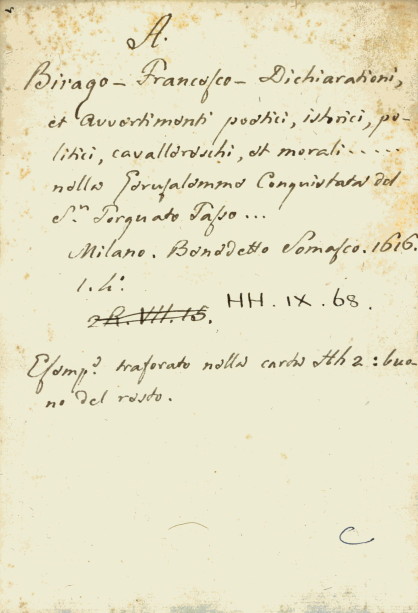 A.
Birago - Francesco - Dichiarationi,
et avvertimenti poetici, istorici, po-
litici, cavallereschi, et morali.....
nella Gerusalemme Conquistata del
S.ʳ Torquato Tasso...
Milano. Benedetto Somasco. 1616.
1. 4°.
R. VII. 15.
HH. IX. 68.
Esemp.e traforato nella carta Hh 2: buo-
no del resto.
C